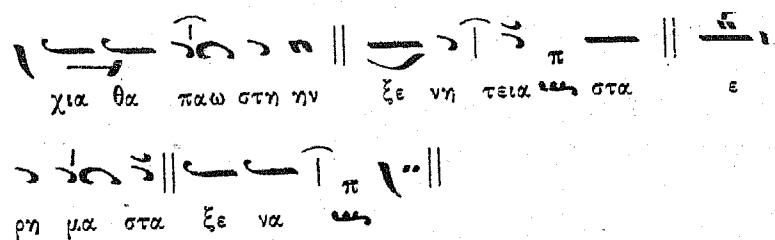 χια θα παω στη ην ξε νη τεια π στα ε
ρη μα στα ξε να π